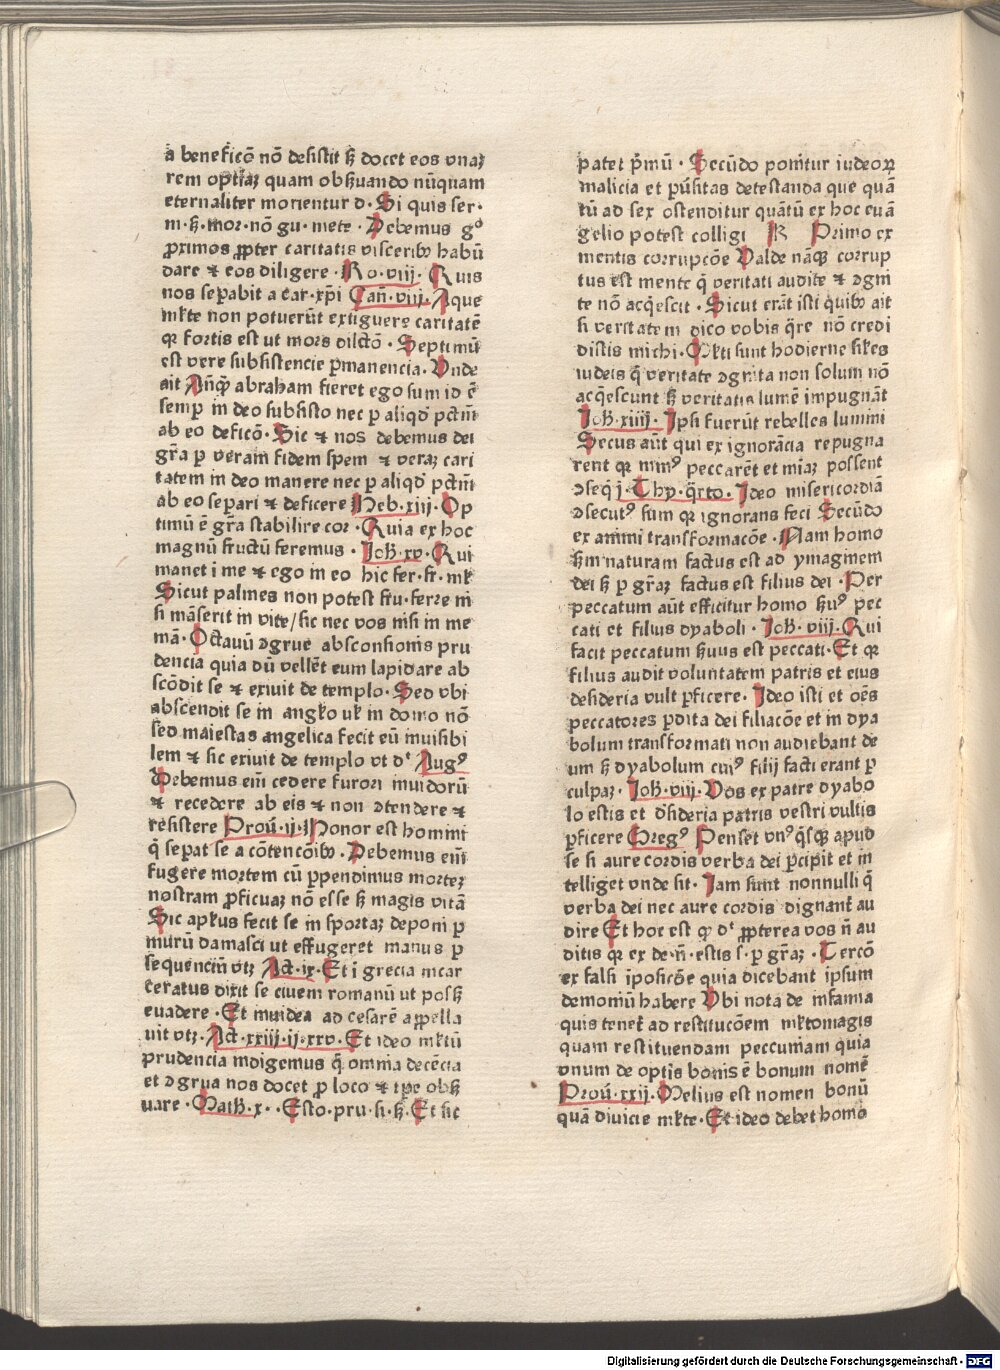 a beneficō nō desistit ꝫ docet eos vnaꝫ
rem optiaꝫ quam obẜuando nūquam
eternaliter morientur d · Si quis ser·
m·ꝫ·mor·nō gu·mete · Debemus gͦ
ꝓximos ꝓpter caritatis visceribꝰ habū
dare ⁊ eos diligere · Ro·viij · Quis
nos sepabit a car·xp̄i Cañ·viij · Aque
ml̓te non potuerūt extiguere caritatē
qꝛ fortis est ut mors dilctō · Septimū
est vere subsistencie ꝑmanencia · Vnde
ait Anꝙ̄ abraham fieret ego sum id ē
semꝑ in deo subsisto nec ꝑ aliqd̓ pctm̄
ab eo deficō · Sic ⁊ nos debemus dei
gr̄a ꝑ veram fidem spem ⁊ veraꝫ cari
tatem in deo manere nec ꝑ aliqd̓ pctm̄
ab eo separi ⁊ deficere Heb·xiij · Op
timū ē gr̄a stabilire cor · Quia ex hoc
magnū fructū feremus · Joh̓·xv · Qui
manet i me ⁊ ego in eo hic fer·fr·ml̓
Sicut palmes non potest fru·ferre ni
si māserit in vite/sic nec vos nisi in me
mā · Octauū ꝯgrue absconsionis pru
dencia quia dū vellēt eum lapidare ab
scōdit se ⁊ exiuit de templo · Sed vbi
abscondit se in angl̓o ul̓ in domo nō
sed maiestas angelica fecit eū inuisibi
lem ⁊ sic exiuit de templo vt dͭ Augꝰ
Debemus em̄ cedere furori mūdorū
⁊ recedere ab eis ⁊ non ꝯtendere ⁊
resistere Prou̓·ij · Honor est homini
q̄ sepat se a cōtencōibꝰ · Debemus em̄
fugere mortem cū ꝑpendimus morteꝫ
nostram ꝓficuaꝫ nō esse ꝫ magis vitā
Sic apl̓us fecit se in sportaꝫ deponi ꝑ
murū damasci ut effugeret manus ꝑ
sequenciū vtꝫ Act·ix · Et i grecia incar
ceratus dixit se ciuem romanū ut posꝫ
euadere · Et in iudea ad cesarē appella
uit vtꝫ · Act·xxiij·ij·xxv · Et ideo ml̓tū
prudencia indigemus q̄ omnia decēcia
et ꝯgrua nos docet ꝓ loco ⁊ tp̄e obẜ
uare · Math̓·x · Esto·pru·si·ẜ · Et sic
patet pͥmū · Secūdo ponit̄ur iudeoꝝ
malicia et ꝑūsitas detestanda que quā
tū ad sex ostenditur quātū ex hoc euā
gelio potest colligi R Primo ex
mentis corrupcōe Valde nāqꝫ corrup
tus est mente q̄ veritati audite ⁊ ꝯgni
te nō acq̄escit · Sicut erāt isti quibꝰ ait
si veritatem dico vobis q̄re nō credi
distis michi · Ml̓ti sunt hodierne sil̓es
iudeis q̄ veritate ꝯgnita non solum nō
acq̄escunt ꝫ veritatis lumē impugnāt
Joh̓·xiiij · Ipsi fuerūt rebelles lumini
Secus aūt qui ex ignorācia repugna
rent qꝛ minꝰ peccarēt et miaꝫ possent
ꝯseq̄ j·Thy·q̄rto · Ideo misericordiā
ꝯsecutꝰ sum qꝛ ignorans feci Secūdo
ex animi transformacōe · Nam homo
ẜm naturam factus est ad ymaginem
dei ꝫ ꝑ gr̄aꝫ factus est filius dei · Per
peccatum aūt efficitur homo ẜuꝰ pec
cati et filius dyaboli · Joh̓·viij · Qui
facit peccatum ẜuus est peccati · Et qꝛ
filius audit voluntatem patris et eius
desideria vult ꝑficere · Ideo isti et oēs
peccatores ꝑdita dei filiacōe et in dya
bolum transformati non audiebant de
um ꝫ dyabolum cuiꝰ filij facti erant ꝑ
culpaꝫ · Joh̓·viij · Vos ex patre dyabo
lo estis et d̓sideria patris vestri vultis
ꝑficere Gregꝰ Penset vnꝰq̄sqꝫ apud
se si aure cordis verba dei ꝑcipit et in
telliget vnde sit · Iam sunt nonnulli q̄
verba dei nec aure cordis dignant̄ au
dire Et hoc est qd̓ dͭ ꝓpterea vos n̄ au
ditis qꝛ ex de·n̄·estis s·ꝑ gr̄aꝫ · Tercō
ex falsi īposicōe quia dicebant ipsum
demoniū habere Vbi nota de infamia
quis tenet̄ ad restitucōem ml̓tomagis
quam restituendam peccuniam quia
vnum de optis bonis ē bonum nomē
Prou̓·xxij · Melius est nomen bonū
quā diuicie ml̓te · Et ideo debet homo
Digitalisierung gefördert durch die Deutsche Forschungsgemeinschaft - DFG